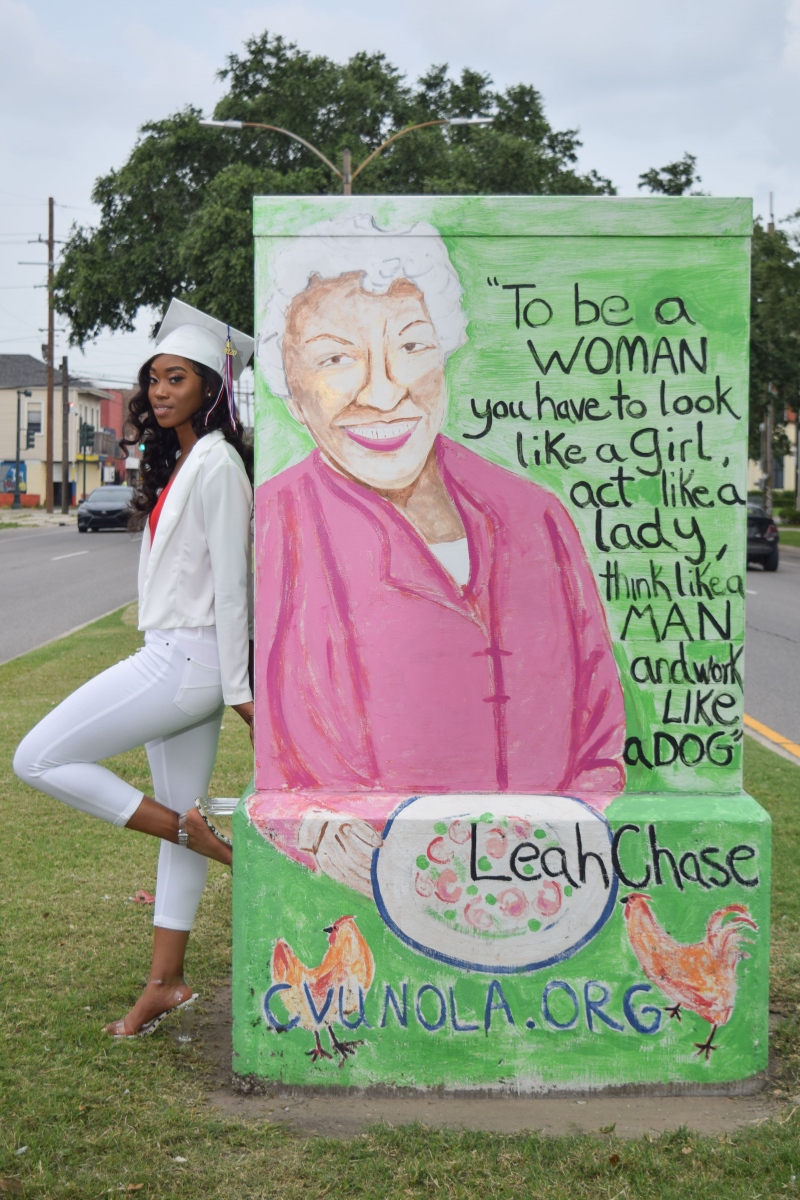 "To be a
WOMAN
you have to look
like a girl,
act like a
lady,
think like a
MAN
and work
LIKE
a DOG"
Leah Chase
CVUNOLA.ORG